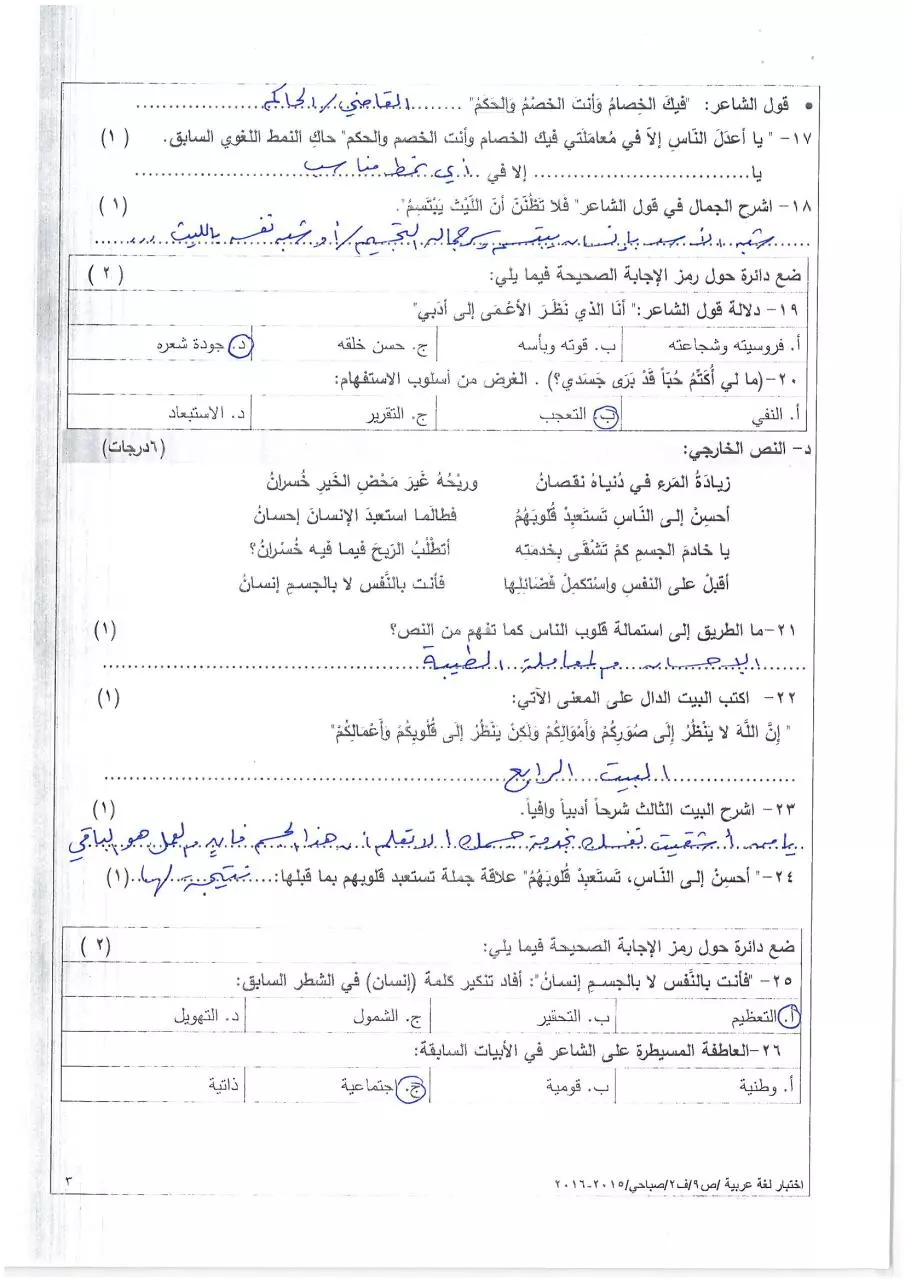 • قول الشاعر: "فيكَ الخِصامُ وَأنتَ الخَصْمُ وَالحَكَمُ" ........القاضي/الحاكم......................
١٧- "يا أعدَلَ النّاسِ إلاّ في مُعامَلَتي فيكَ الخصام وأنت الخصم والحكم" حاكِ النمط اللغوي السابق. (١)
يا............................... إلا في ..أي نمط مناسب..............................
١٨- اشرح الجمال في قول الشاعر" فَلا تَظُنّنَ أنّ اللّيْثَ يَبْتَسِمُ". (١)
شبه الأسد بإنسان يبتسم وجماله التجسيم/أو شبه نفسه بالليث
ضع دائرة حول رمز الإجابة الصحيحة فيما يلي: (٢)
١٩- دلالة قول الشاعر:" أنَا الذي نَظَرَ الأعْمَى إلى أدَبي"
أ. فروسيته وشجاعته ب. قوته وبأسه ج. حسن خلقه د. جودة شعره
٢٠-(ما لي أُكَتِّمُ حُبّاً قَدْ بَرَى جَسَدي؟) . الغرض من أسلوب الاستفهام:
أ. النفي ب. التعجب ج. التقرير د. الاستبعاد
د- النص الخارجي: (٦درجات)
زيادَةُ المَرءِ في دُنياهُ نقصانُ وربْحُهُ غَيرَ مَحْضِ الخَيرِ خُسرانُ
أحسِنْ إلى النّاسِ تَستَعبِدْ قُلوبَهُمُ فطالَما استعبدَ الإنسانَ إحسانُ
يا خادمَ الجسمِ كمْ تَشْقَى بِخدمتِه أتطْلُبُ الرّبحَ فيما فيه خُسْرانُ؟
أقبلْ على النفسِ واستكملْ فَضائلِها فأنتَ بالنَّفسِ لا بالجسمِ إنسانُ
٢١-ما الطريق إلى استمالة قلوب الناس كما تفهم من النص؟ (١)
الإحسان والمعاملة الطيبة
٢٢- اكتب البيت الدال على المعنى الآتي: (١)
" إنَّ اللَّهَ لا يَنْظُرُ إلَى صُوَرِكُمْ وَأمْوَالِكُمْ وَلَكِنْ يَنْظُرُ إلَى قُلُوبِكُمْ وَأعْمَالِكُمْ"
البيت الرابع
٢٣- اشرح البيت الثالث شرحاً أدبياً وافياً. (١)
يا من أشقيت نفسك بخدمة جسمك ألا تعلم أن هذا الجسم فانٍ والعمل هو الباقي
٢٤-" أحسِنْ إلى النّاسِ، تَستَعبِدْ قُلوبَهُمُ" علاقة جملة تستعبد قلوبهم بما قبلها:....نتيجة لها..(١)
ضع دائرة حول رمز الإجابة الصحيحة فيما يلي: (٢)
٢٥- "فأنت بالنَّفس لا بالجسمِ إنسانُ": أفاد تنكير كلمة (إنسان) في الشطر السابق:
أ. التعظيم ب. التحقير ج. الشمول د. التهويل
٢٦-العاطفة المسيطرة على الشاعر في الأبيات السابقة:
أ. وطنية ب. قومية ج. اجتماعية ذاتية
اختبار لغة عربية /ص٩/ف٢/صباحي/٢٠١٥-٢٠١٦ ٣